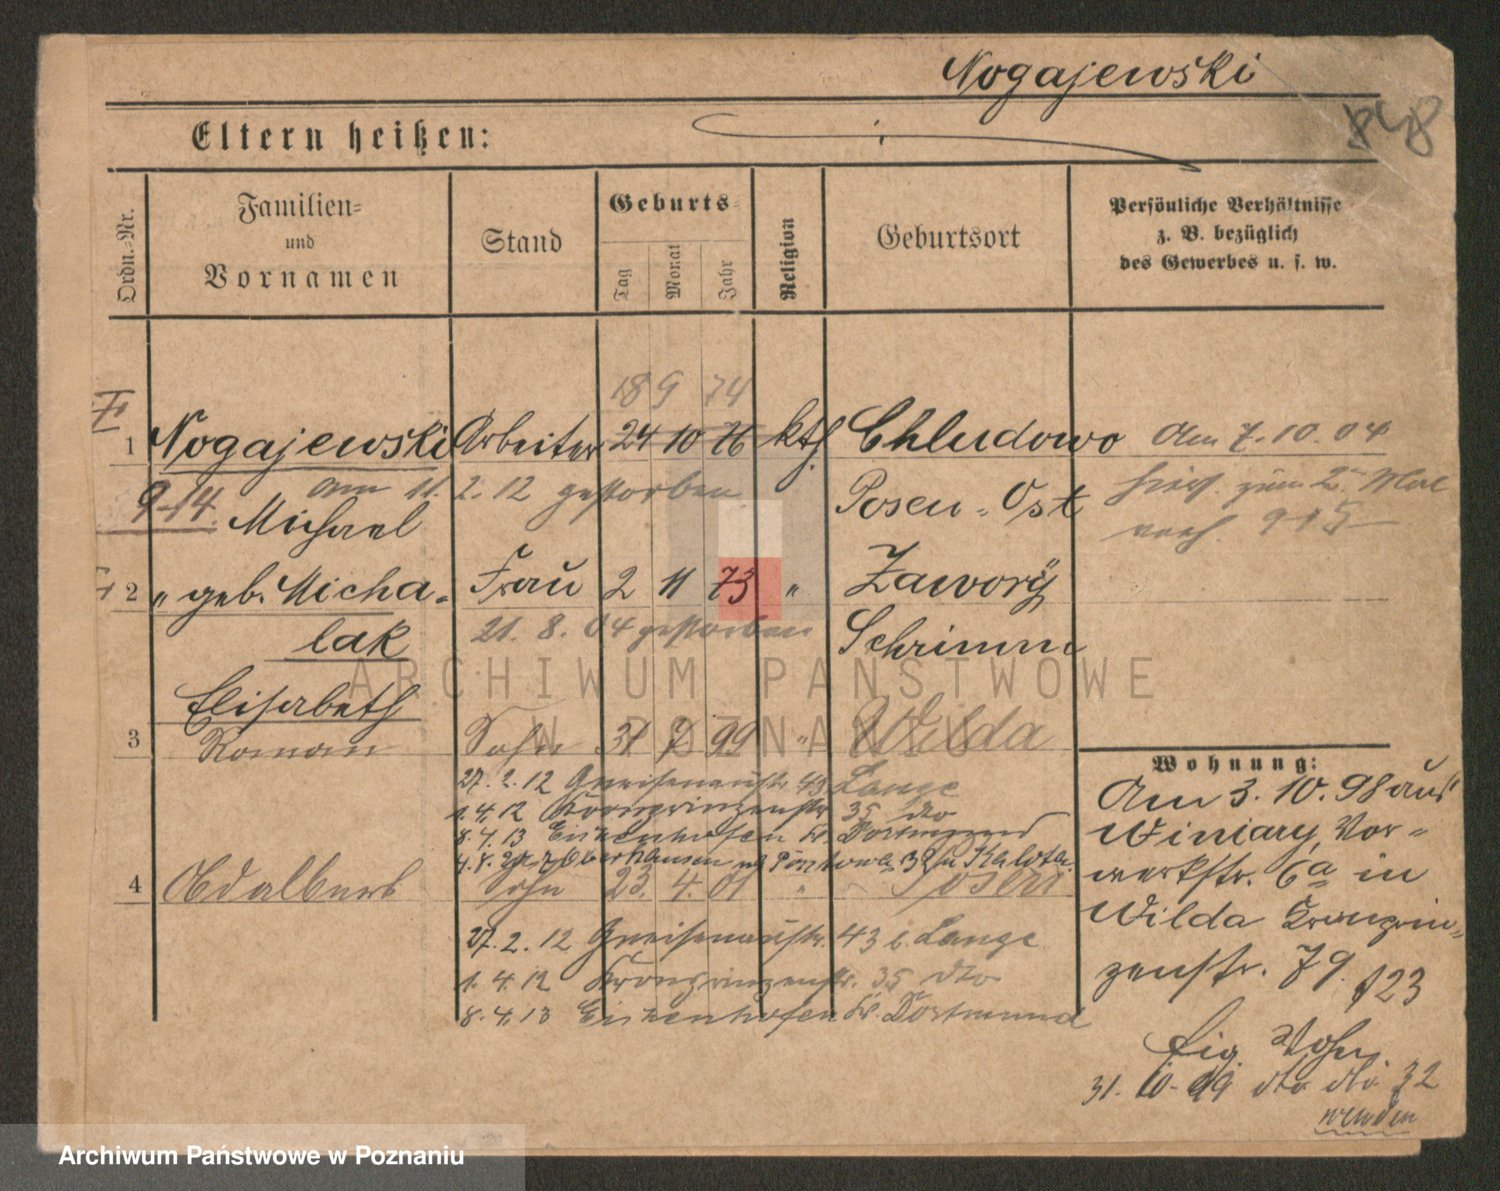 Nogajewski
Eltern heißen:
Ordn.-Nr.
Familien-
und
Vornamen
Stand
Geburts-
Tag
Monat
Jahr
Religion
Geburtsort
Persönliche Verhältnisse
z. B. bezüglich
des Gewerbes u. s. w.
18 9 74
1 Nogajewski Arbeiter 24 10 76 kth. Chludowo Am 7.10.04
9-14. am 11. 2. 12 gestorben
Michael
Posen-Ost
2 " geb. Micha- Frau 2 11 73 " Zawory
lak
21. 8. 04 gestorben
Schrimm
Elisabeth
3 Roman Sohn 31 7 99 " Wilda
27. 2. 12 Gneisenaustr. 43 Lange
1. 4. 12 Kronprinzenstr. 35 dto
8. 4. 13 Eickenhofen Kr. Dortmund
4 Adalbert Sohn 23. 4. 01 " Posen
27. 2. 12 Gneisenaustr. 43 b. Lange
1. 4. 12 Kronprinzenstr. 35 dto
8. 4. 13 Eickenhofen Kr. Dortmund
Wohnung:
Am 3. 10. 98 aus
Winiary, Vor-
werkstr. 6a in
Wilda Kronprin-
zenstr. 79. 123
31. 10. 99 dto dto 32
wenden
ARCHIWUM PAŃSTWOWE
W POZNANIU
Archiwum Państwowe w Poznaniu